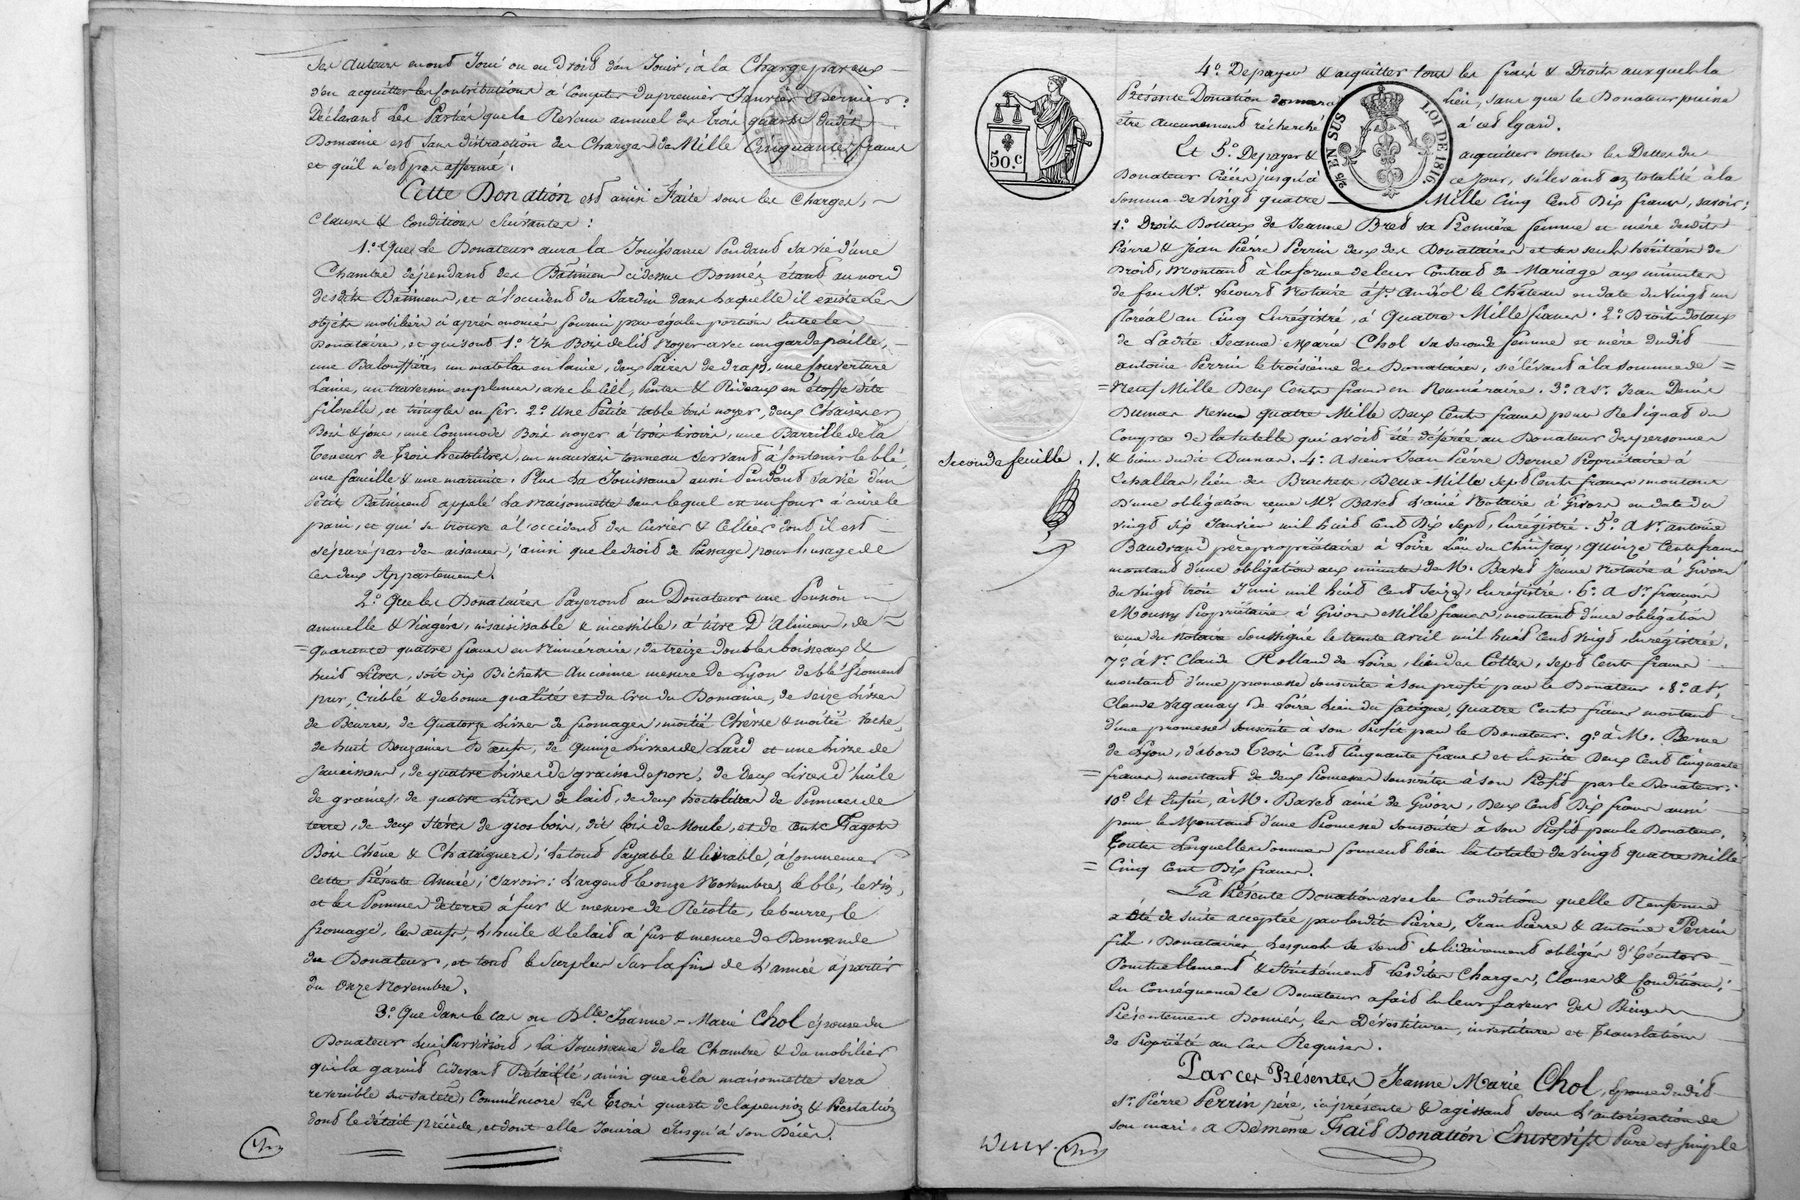 ses auteurs en ont Joui ou eu Droit d'en Jouir, à la Charge par eux
d'en acquitter les Contributions à Compter du premier Janvier Dernier.
Déclarant Les Parties que le Revenu annuel des trois quarts dudit
Domaine est sans distraction des Charges de Mille Cinquante francs
et qu'il n'est pas affermé.
Cette Donation est ainsi Faite sous les Charges,
Clauses & Conditions Suivantes :
1.° Que Le Donateur aura la Jouissance Pendant sa vie d'une
Chambre dépendant des Bâtimens cidessus Donnés, étant au nord
desdits Batimens, et à l'occident du Jardin dans laquelle il existe Les
objets mobiliers ci après énoncés fournis par égales portions Entre les
Donataires, et qui sont 1.° Un Bois de lit Noyer avec un gardepaille,
une Balouffière, un matelas en laine, deux Paires de draps, une Couverture
Laine, un traversin en plumes, avec le Ciel, Pentes & Rideaux en étoffe dite
filoselle, et tringles en fer. 2.° Une Petite table bois noyer, deux Chaises
Bois & jonc, une Commode Bois noyer à trois tiroirs, une Barrille de la
teneur de Trois hectolitres, un mauvais tonneau servant à Contenir le blé,
une faucille & une marmite. Plus La Jouissance aussi Pendant sa vie d'un
Petit Bâtiment appelé La maisonnette dans lequel est un four à cuire le
pain, et qui se trouve à l'occident des Cuvier & Cellier dont il est
séparé par des aisances, ainsi que le droit de Passage pour l'usage de
ces deux Appartemens.
2.° Que les Donataires Payeront au Donateur une Pension
annuelle & Viagère, insaisissable & incessible, à titre D'Alimens, de
quarante quatre francs en Numéraire, de treize doubles boisseaux &
huit Litres, soit dix Bichets Ancienne mesure de Lyon de blé froment
pur, Criblé & de bonne qualité et du Cru du Domaine, de seize Livres
de Beurre, de Quatorze Livres de fromages, moitié Chèvre & moitié Vache,
de huit Douzaines D'œufs, de Quinze Livres de Lard et une Livre de
Saucissons, de quatre Livres de graisse de porc, de Deux Livres d'huile
de graines, de quatre Litres de lait, de deux hectolitres de Pommes de
terre, de deux Stères de gros bois, dit bois de Moule, et de cent Fagots
Bois Chêne & Chataigners, Le tout Payable & livrable, à Commencer
cette Présente Année, Savoir : L'argent le onze Novembre, le blé, le vin,
et les Pommes de terre à fur & mesure de Récolte, le beurre, le
fromage, les œufs, L'huile & le lait à fur & mesure de Demande
du Donateur, et tout le Surplus Sur la fin de L'année à partir
du Onze Novembre.
3.° Que dans le cas ou D.lle Jeanne-Marie Chol épouse du
Donateur Lui Survivroit, La Jouissance de la Chambre & du mobilier
qui la garnit cidevant Détaillé, ainsi que de la maisonnette sera
reversible sur sa tête, Comme encore Les trois quarts de la pension & Prestations
dont le détail précède, et dont elle Jouira Jusqu'à son Décès.
4.° De payer & acquitter tous les frais & Droits auxquels la
Présente Donation donnera lieu, sans que le Donateur puisse
être Aucunement recherché à cet égard.
Et 5.° De payer & acquitter toutes les Dettes du
Donateur Créées jusqu'à ce Jour, s'élevant en totalité à la
Somme de Vingt quatre Mille Cinq Cent Dix francs, savoir :
1.° Droits Dotaux de Jeanne Bret sa Première femme et mère desdits
Pierre & Jean Pierre Perrin deux des Donataires et ses seuls héritiers de
Droit, Montant à la forme de leur Contrat de Mariage aux minutes
de feu M.e Lecourt Notaire à St. Andéol le Château en date du Vingt un
floréal an Cinq Enregistré, à Quatre Mille francs. 2.° Droits dotaux
de Ladite Jeanne Marie Chol sa seconde femme et mère dudit
Antoine Perrin le troisième des Donataires, s'élevant à la somme de
Neuf Mille Deux Cents francs en Numéraire. 3.° à Sr. Jean Denis
Dumas Neveu quatre Mille Deux Cents francs pour Reliquat du
Compte de la tutelle qui avoit été déférée au Donateur des personnes
Seconde feuille. 1.
& biens dudit Dumas. 4.° A sieur Jean Pierre Berne Propriétaire à
Echallas, lieu des Brachets, Deux Mille Sept Cents francs, montant
D'une obligation reçue M.e Baret L'ainé Notaire à Givors en date du
vingt six Janvier mil huit Cent Dix Sept, Enregistré. 5.° A Sr. Antoine
Baudrand père propriétaire à Loire Lieu du Chuffray, quinze Cents francs
montant d'une obligation aux minutes de M.e Baret Jeune Notaire à Givors
du Vingt trois Juin mil huit Cent Seize, Enregistré. 6.° à Sr. François
Moussy Propriétaire à Givors Mille francs, montant d'une obligation
reçue du Notaire Soussigné le trente Avril mil huit Cent Vingt, Enregistrée.
7.° à Sr. Claude Rolland de Loire, lieu des Cottes, Sept Cents francs
montant d'une promesse souscrite à son profit par le Donateur. 8.° à Sr.
Claude Veganay de Loire Lieu du Satigue, Quatre Cents francs montant
d'une promesse souscrite à son Profit par le Donateur. 9.° à M. Berne
de Lyon, d'abord Trois Cent Cinquante francs et Ensuite Deux Cent Cinquante
francs, montant de deux Promesses souscrites à son Profit par le Donateur.
10.° Et Enfin, à M. Baret ainé de Givors, Deux Cent Dix francs aussi
pour le Montant d'une Promesse Souscrite à son Profit par le Donateur.
Toutes Lesquelles Sommes forment bien la totale de Vingt quatre mille
Cinq Cent Dix francs.
La Présente Donation avec les Conditions quelle Renferme
a été de suite acceptée par lesdits Pierre, Jean Pierre & Antoine Perrin
fils, Donataires, Lesquels se sont solidairement obligés D'Exécuter
Ponctuellement & Strictement Lesdites Charges, Clauses & Conditions ;
En Conséquence le Donateur a fait En leur faveur des Biens
Présentement Donnés, les Dévestitures, investitures et Translations
de Propriété au Cas Requises.
Par ces Présentes Jeanne Marie Chol, épouse dudit
Sr. Pierre Perrin père, ici présente & agissant sous L'autorisation de
son mari, a De même Fait Donation Entrevifs Pure et simple
Deux.
50.C
2/5 EN SUS
LOI DE 1816.